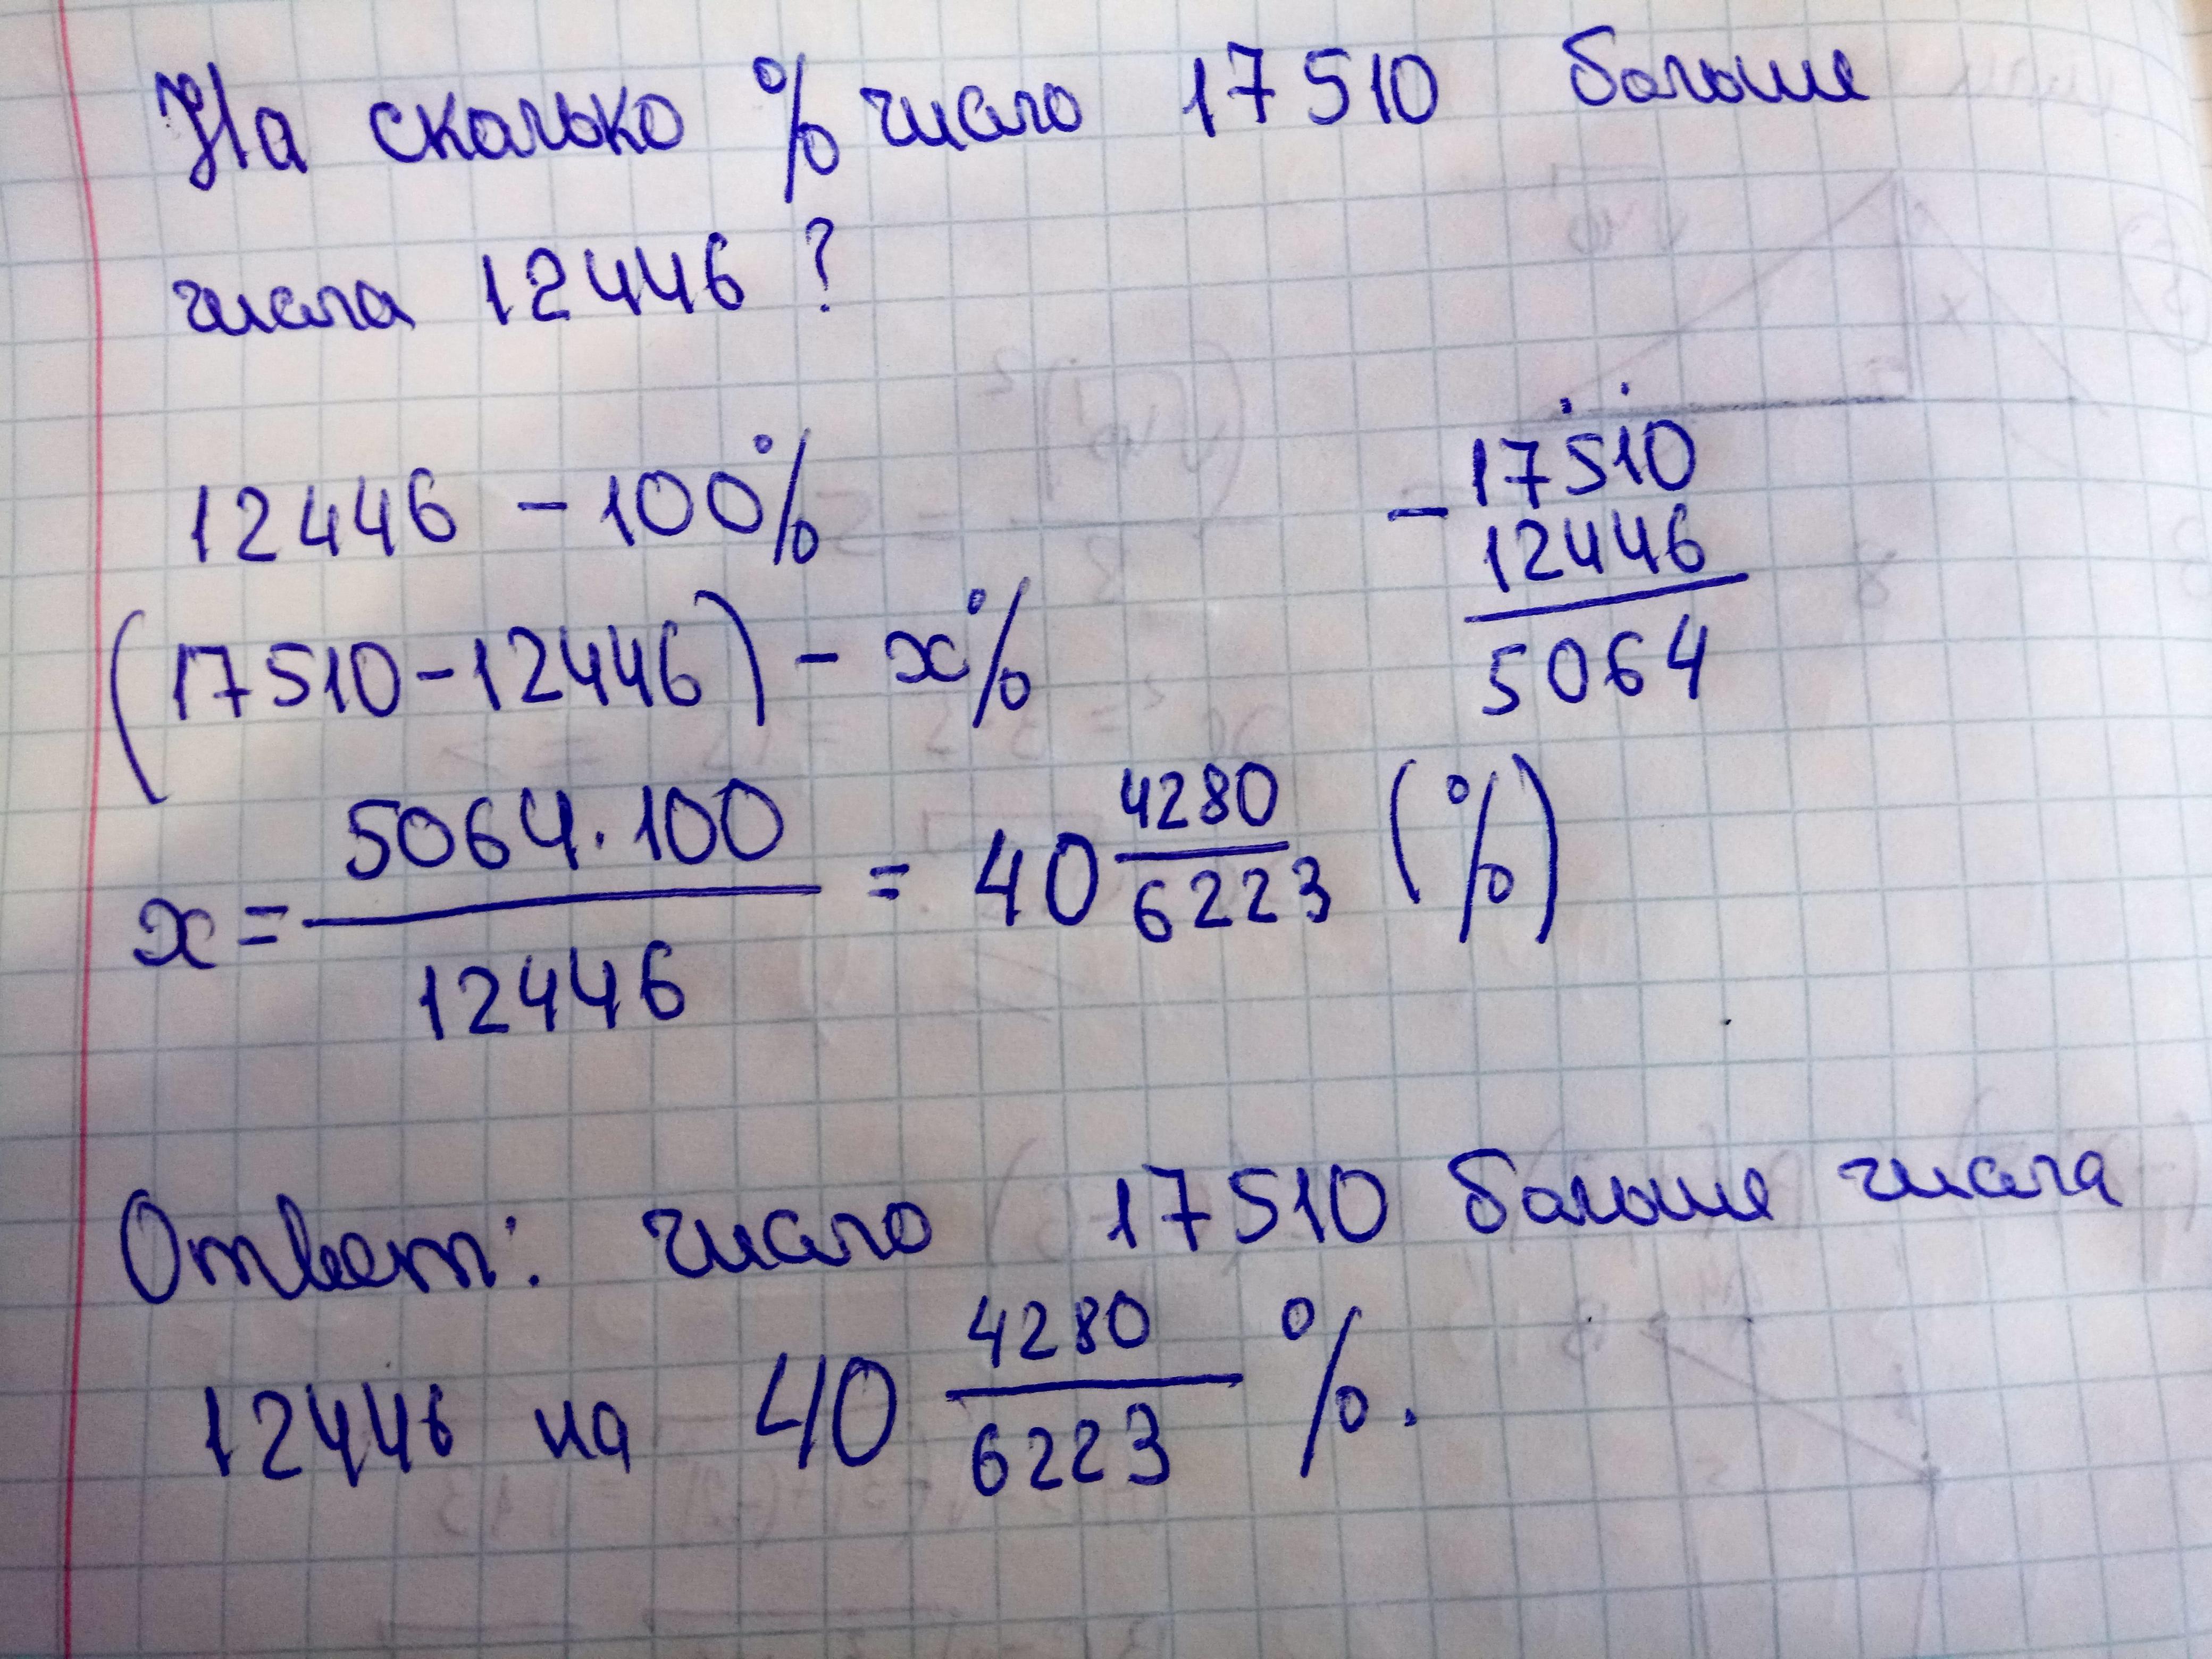 На сколько % число 17510 больше
числа 12446 ?
12446 – 100%
(17510 – 12446) – x%
– 17510
12446
5064
x = 5064 · 100 / 12446 = 40 4280/6223 (%)
Ответ: число 17510 больше числа
12446 на 40 4280/6223 %.